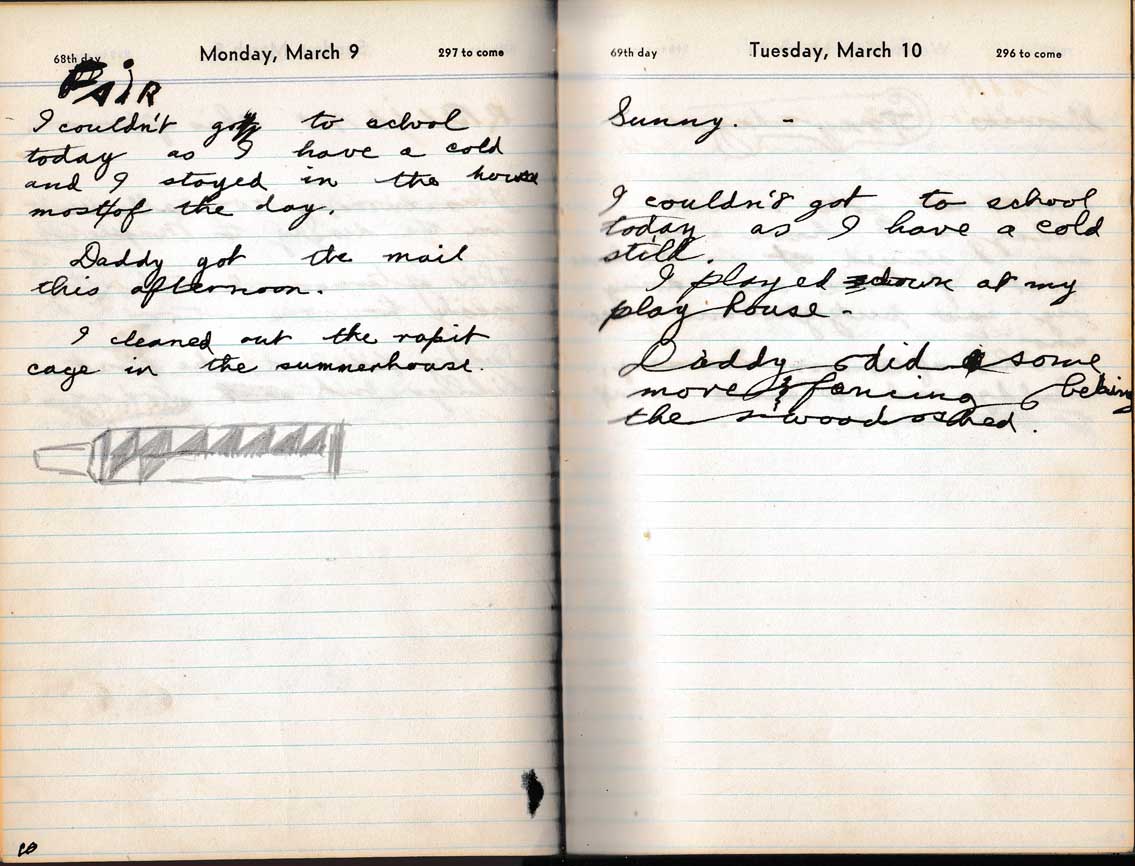 68th day Monday, March 9 297 to come
FAiR
I couldn't got to school
today as I have a cold
and I stayed in the house
most of the day.
Daddy got the mail
this afternoon.
I cleaned out the rapit
cage in the summerhouse.
69th day Tuesday, March 10 296 to come
Sunny. -
I couldn't got to school
today as I have a cold
still.
I played down at my
play house.
Daddy did some
more fencing behing
the woodshed.